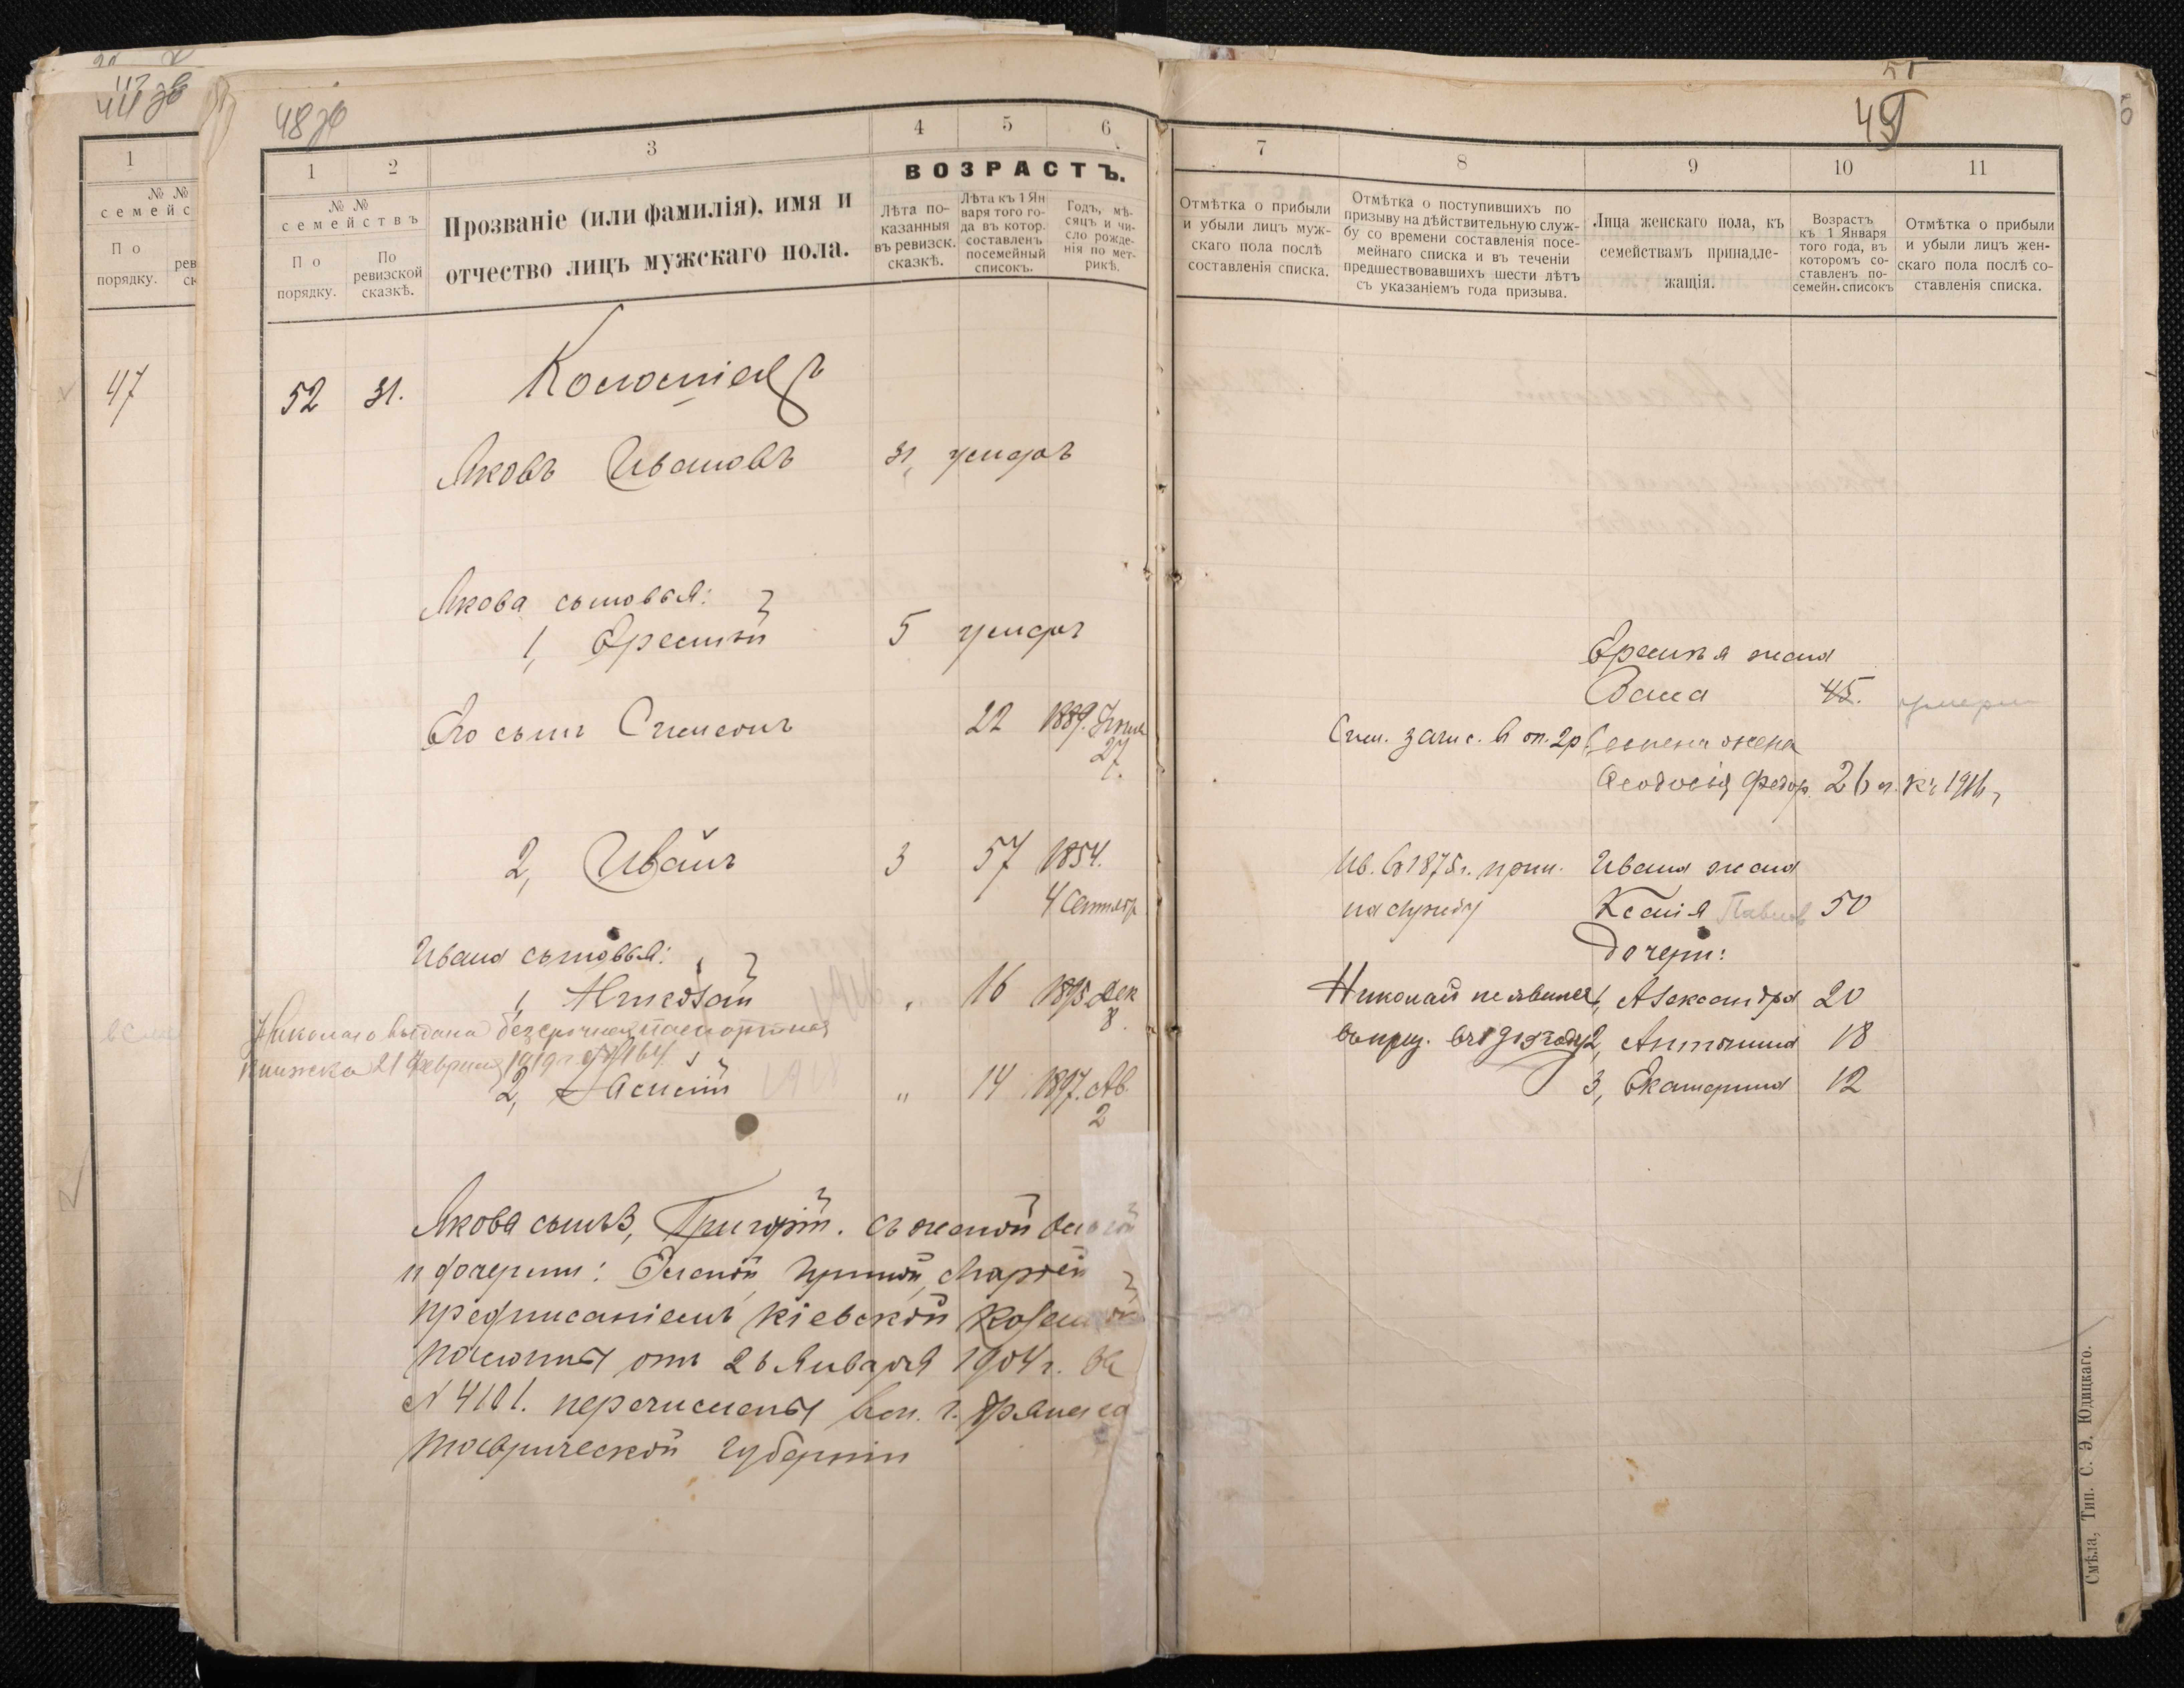 44
47
48 зв
1
№ №
семейс
По
порядку.
1 2 3 4 5 6
№ №
семействъ
По
порядку.
По
ревизской
сказкѣ.
Прозваніе (или фамилія), имя и
отчество лицъ мужскаго пола.
ВОЗРАСТЪ.
Лѣта по-
казанныя
въ ревизск.
сказкѣ.
Лѣта къ 1 Ян
варя того го-
да въ котор.
составленъ
посемейный
списокъ.
Годъ, мѣ-
сяцъ и чи-
сло рожде-
нія по мет-
рикѣ.
52 31.
Яковъ Ивановъ 31, умеръ
Якова сыновья:
1, 5 умеръ
Его сынъ Семенъ 22 1889. 27
2, Иванъ 3 57 1854.
4 Сентябр
Ивана сыновья:
1, Николай " 16 1895 Дек
8.
Николаю выдана безсрочная паспортная
книжка 21 Февраля 1919 г.
2, " 14 1897. Ав.
2
Якова сынъ 3, Григорій. съ женой
и дочерьми: Еленой, Ириной, Маріей
предписаніемъ Кіевской Казенной
палаты отъ 26 Января 1904 г. за
№ 4101. перечислены въ г.
Таврической губерніи
49
7 8 9 10 11
Отмѣтка о прибыли
и убыли лицъ муж-
скаго пола послѣ
составленія списка.
Отмѣтка о поступившихъ по
призыву на дѣйствительную служ-
бу со времени составленія посе-
мейнаго списка и въ теченіи
предшествовавшихъ шести лѣтъ
съ указаніемъ года призыва.
Лица женскаго пола, къ
семействамъ принадле-
жащія.
Возрастъ
къ 1 Января
того года, въ
которомъ со-
ставленъ по-
семейн. списокъ
Отмѣтка о прибыли
и убыли лицъ жен-
скаго пола послѣ со-
ставленія списка.
жена
45. умерла
Сем. зачис. в оп. 2 р. Семена жена
Феодосія Федор. 26 л. къ 1916 г.
Ив. въ 1875 г. прин. Ивана жена
на службу Ксенія Павлов 50
Дочери:
Николай не явился 1, Александра 20
въ 1915 году 2, Антонина 18
3, Екатерина 12
Смѣла, Тип. С. Э. Юдицкаго.